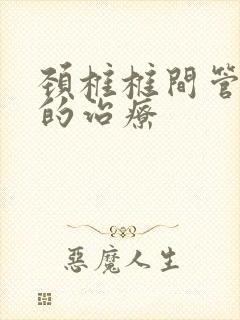 頚椎椎間管
的治療
惡魔人生